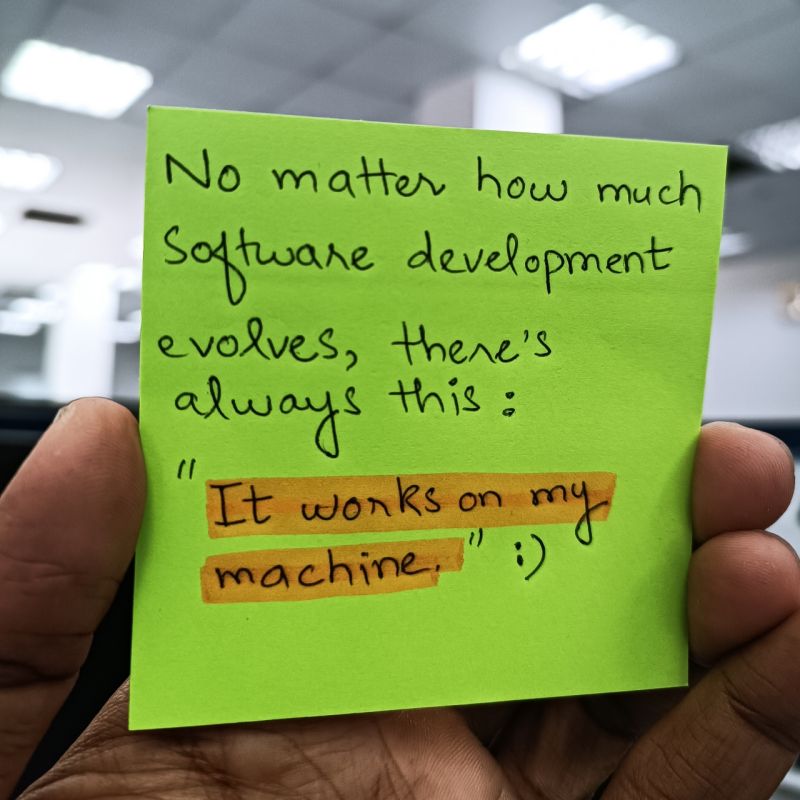 No matter how much
Software development
evolves, there's
always this :
"It works on my
machine." :)